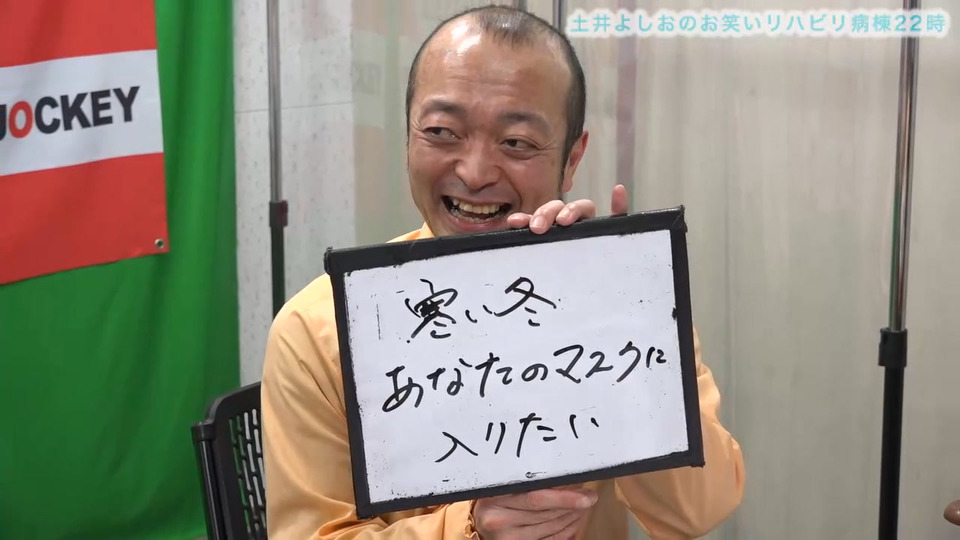 土井よしおのお笑いリハビリ病棟22時
JOCKEY
寒い冬
あなたのマスクに
入りたい